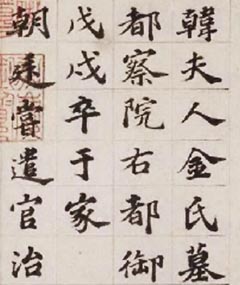 韓夫人金氏墓
都察院右都御
戊戌卒于家
朝廷嘗遣官治